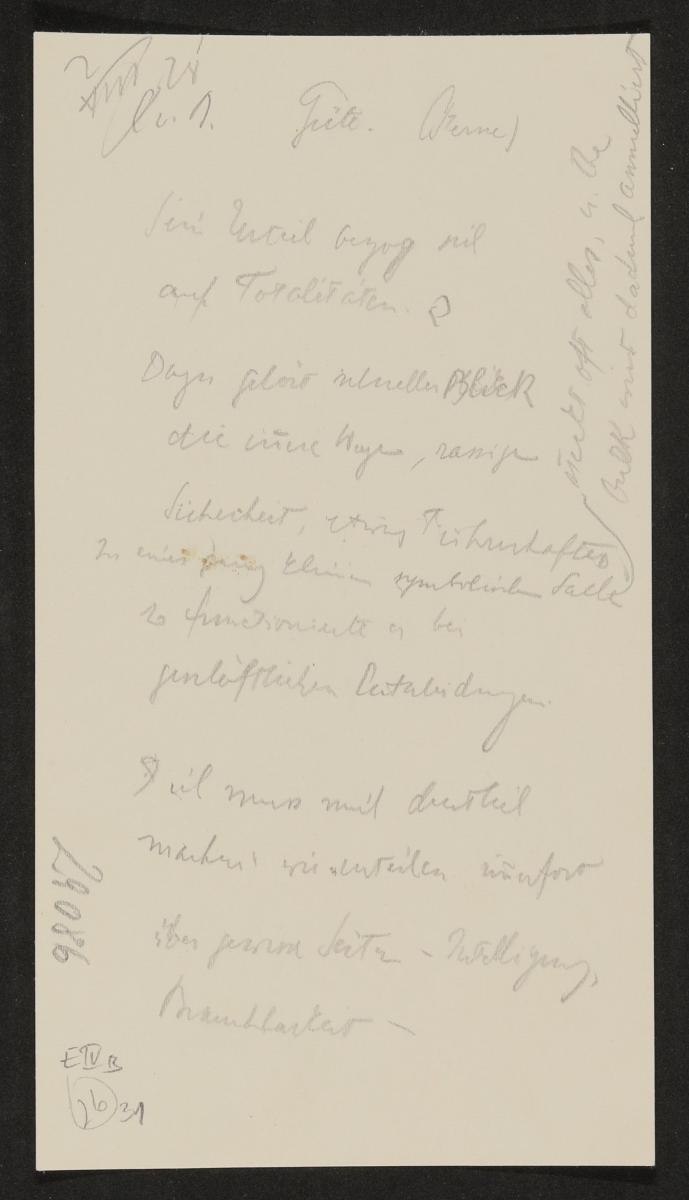 2
VIII 28
Güte. (Kerne)
Sein Urteil bezog sich
auf Totalitäten.
Dazu gehört schneller Blick
die innere Wage, rassige
Sicherheit, etwas Führerhaftes
In einer ganz kleinen symbolischen Sache
So funktionierte er bei
geschäftlichen Entscheidungen.
ich muss mich deutlich
machen: wir urteilen immerfort
über gewisse Seiten – Intelligenz,
Brauchbarkeit –
oft alles, u. die
wird dadurch annulliert
29086
E IV B
26 31